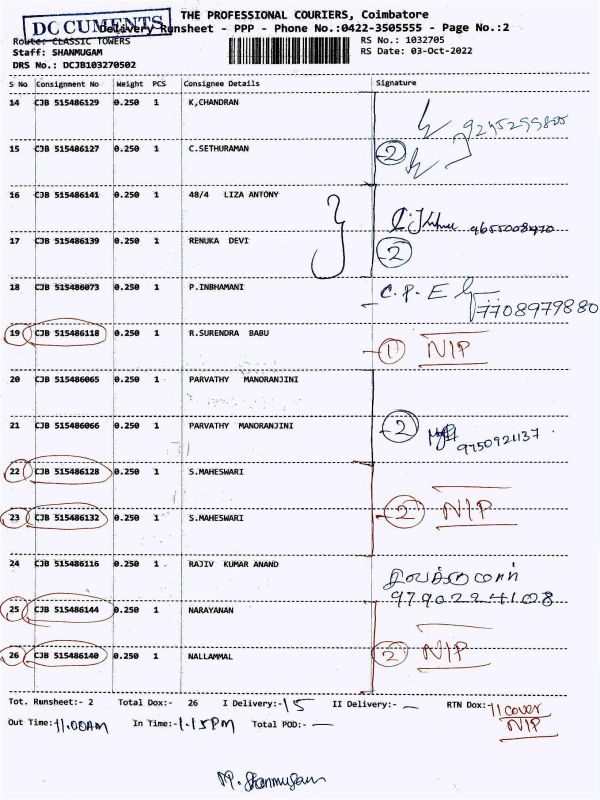 DOCUMENTS
THE PROFESSIONAL COURIERS, Coimbatore
Delivery Runsheet - PPP - Phone No.:0422-3505555 - Page No.:2
Route: CLASSIC TOWERS RS No.: 1032705
Staff: SHANMUGAM RS Date: 03-Oct-2022
DRS No.: DCJB103270502
S No Consignment No Weight PCS Consignee Details Signature
14 CJB 515486129 0.250 1 K,CHANDRAN
15 CJB 515486127 0.250 1 C.SETHURAMAN 2
16 CJB 515486141 0.250 1 48/4 LIZA ANTONY
17 CJB 515486139 0.250 1 RENUKA DEVI 2
18 CJB 515486073 0.250 1 P.INBHAMANI C.P.E
7708979880
19 CJB 515486118 0.250 1 R.SURENDRA BABU 1 NIP
20 CJB 515486065 0.250 1 PARVATHY MANORANJINI
21 CJB 515486066 0.250 1 PARVATHY MANORANJINI 2
22 CJB 515486128 0.250 1 S.MAHESWARI
23 CJB 515486132 0.250 1 S.MAHESWARI 2 NIP
24 CJB 515486116 0.250 1 RAJIV KUMAR ANAND
25 CJB 515486144 0.250 1 NARAYANAN
26 CJB 515486140 0.250 1 NALLAMMAL 2 NIP
Tot. Runsheet:- 2 Total Dox:- 26 I Delivery:- 15 II Delivery:- - RTN Dox:- 11 cover
NIP
Out Time:- 11.00AM In Time:- 1.15PM Total POD:- -
M. Shanmugam